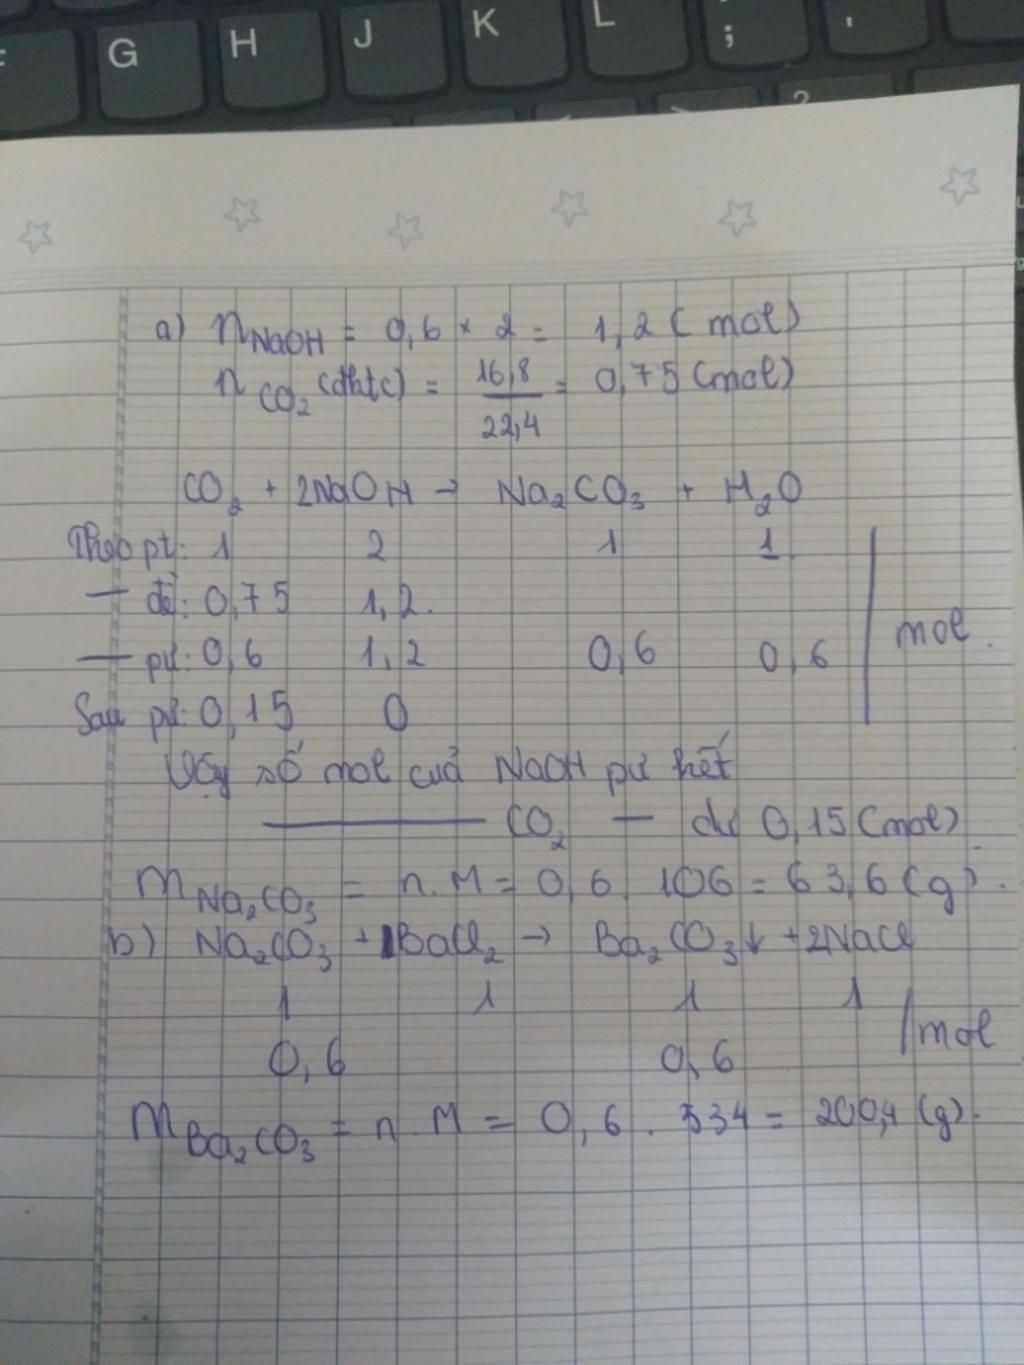 G H J K L ; '
?
a) nNaOH = 0,6 × 2 = 1,2 ( mol)
nCO₂ (đktc) = 16,8 / 22,4 = 0,75 (mol)
CO₂ + 2NaOH → Na₂CO₃ + H₂O
Theo pt: 1 2 1 1
— đề: 0,75 1,2. mol.
— pứ: 0,6 1,2 0,6 0,6
Sau pứ: 0,15 0
Vậy số mol cuả NaOH pứ hết
——— CO₂ — dư 0,15 (mol)
mNa₂CO₃ = n.M = 0,6. 106 = 63,6 (g).
b) Na₂CO₃ + 1BaCl₂ → Ba₂CO₃↓ + 2NaCl
1 1 1 1
0,6 0,6 mol
mBa₂CO₃ = n.M = 0,6. 334 = 200,4 (g).